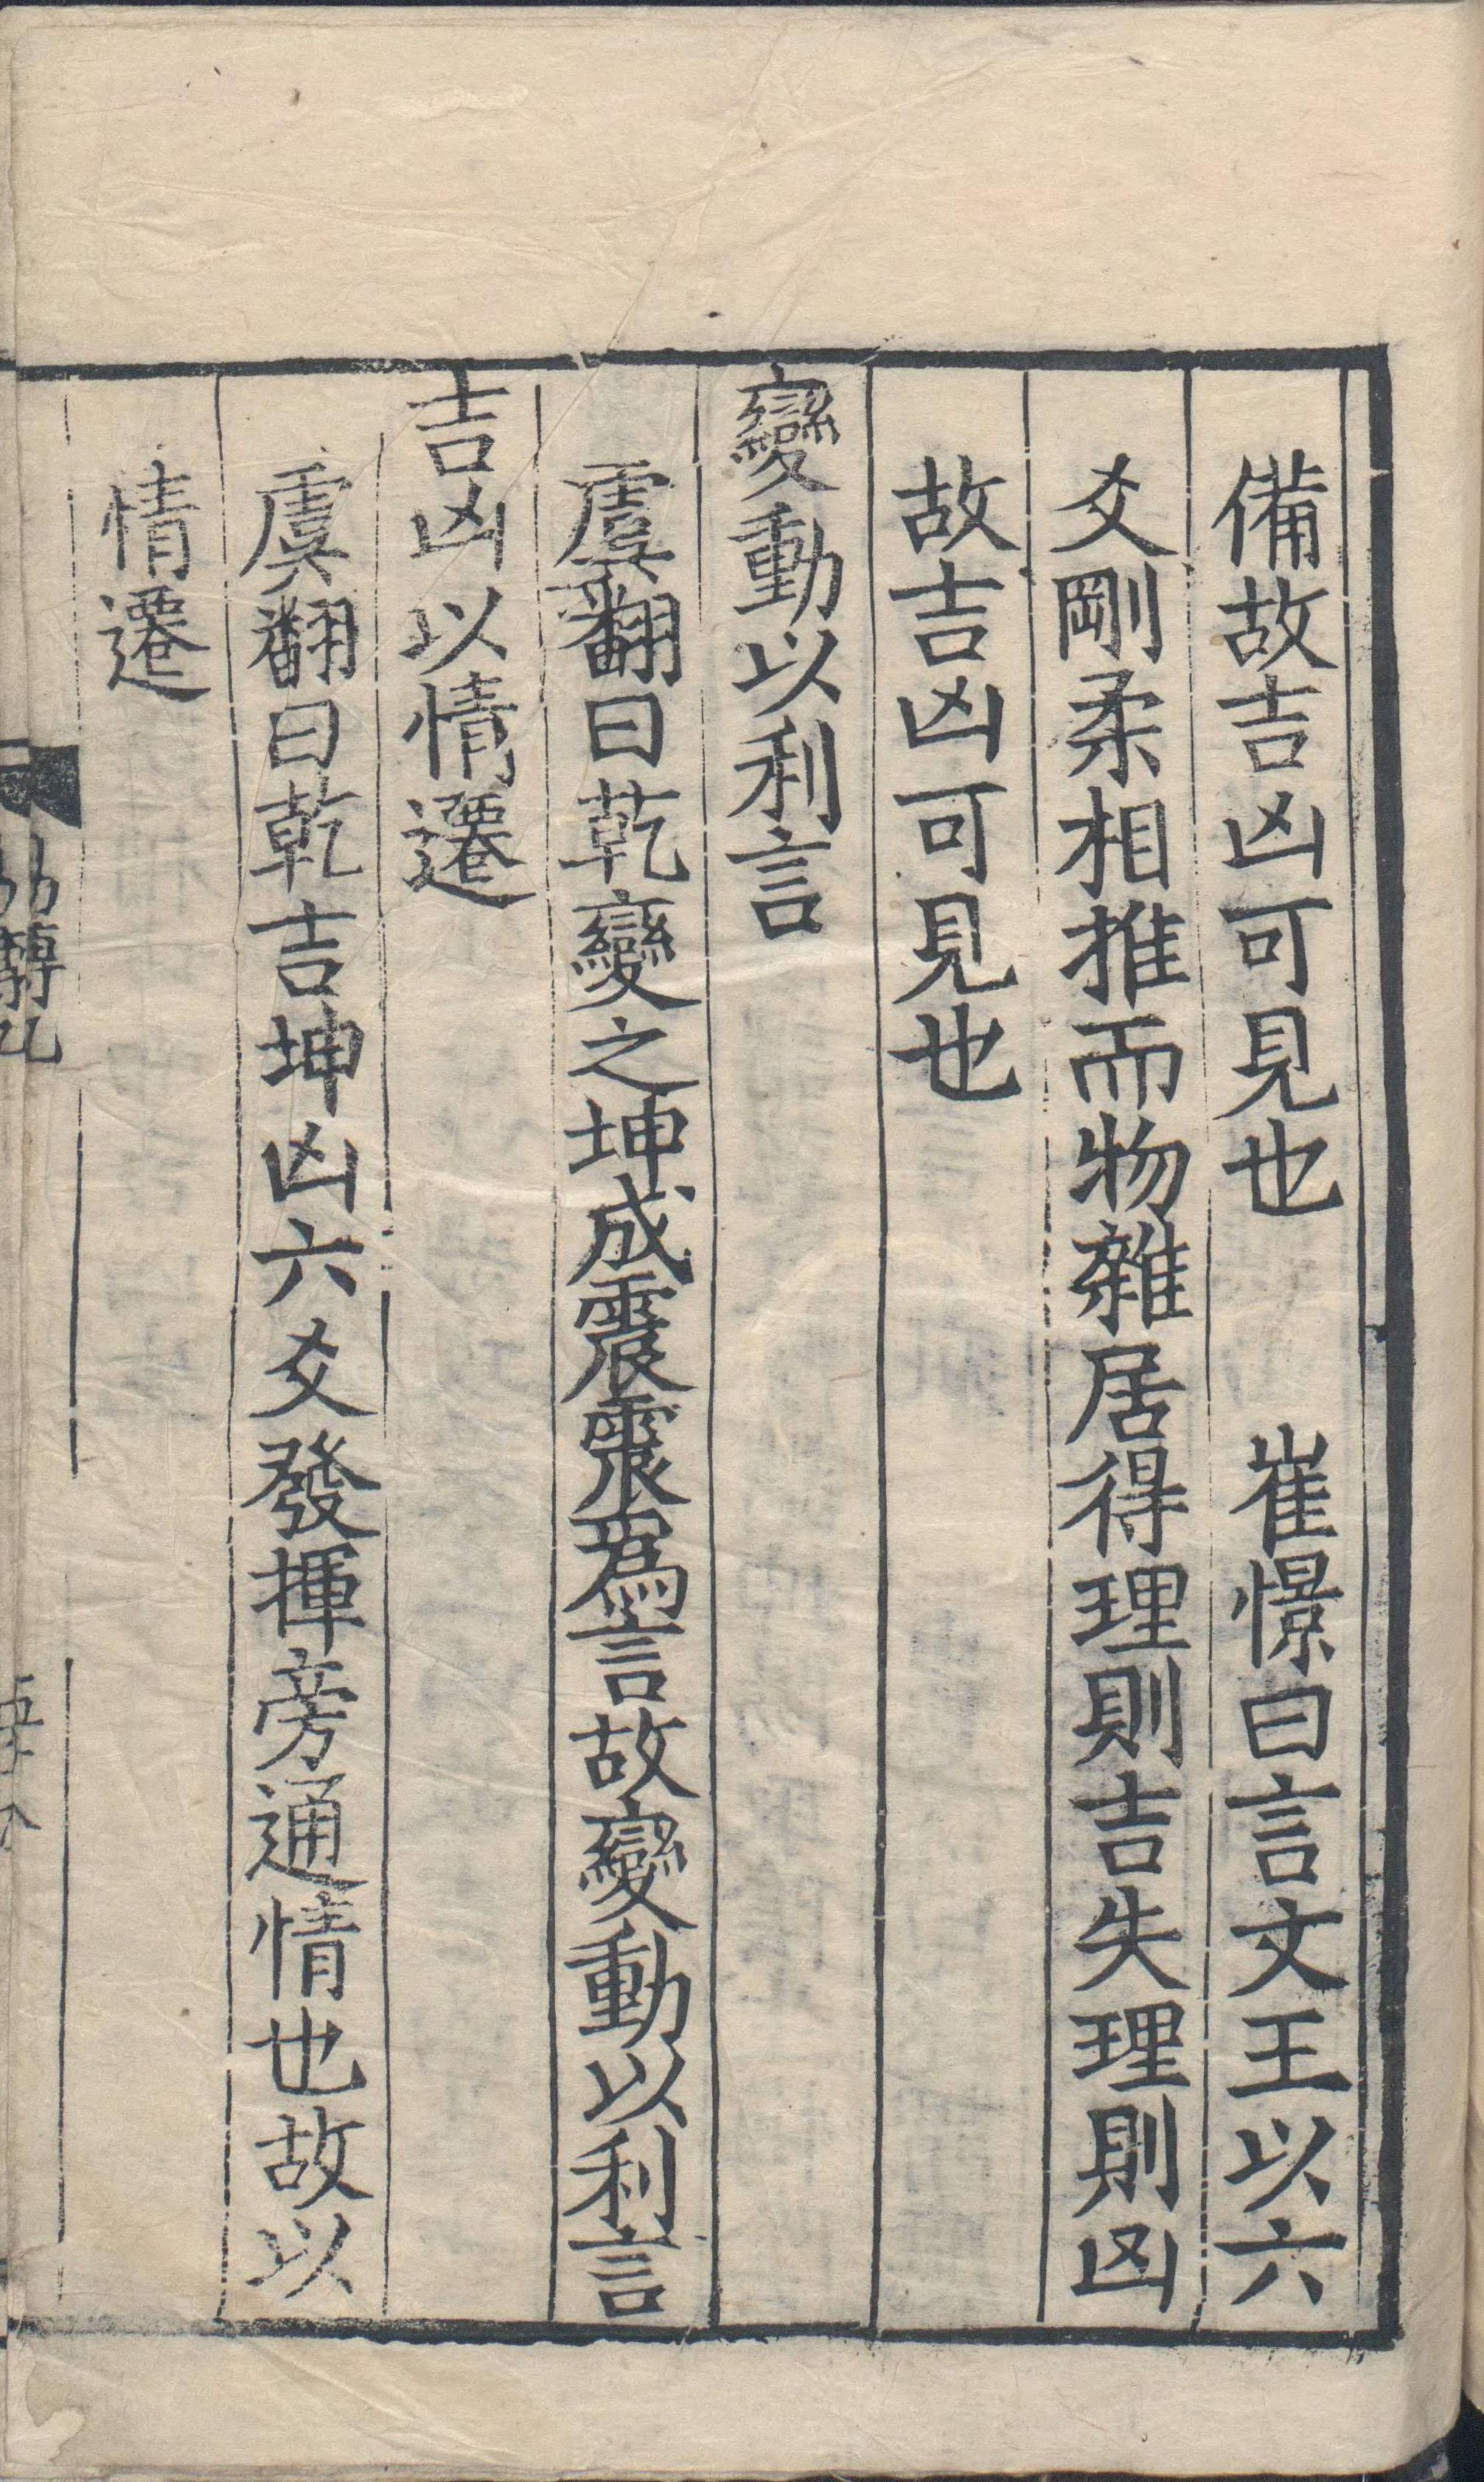 備故吉凶可見也　崔憬曰言文王以六
爻剛柔相推而物雜居得理則吉失理則凶
故吉凶可見也
變動以利言
虞翻曰乾變之坤成震震爲言故變動以利言
吉凶以情遷
虞翻曰乾吉坤凶六爻發揮旁通情也故以
情遷